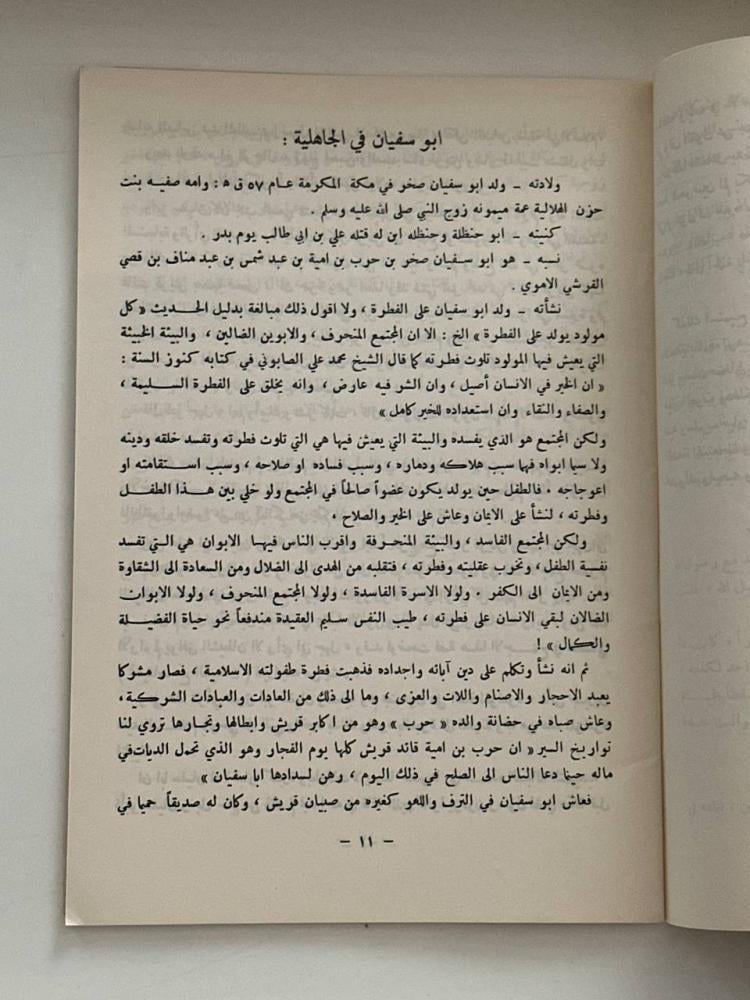 ابو سفيان في الجاهلية :
ولادته – ولد ابو سفيان صخر في مكة المكرمة عام ٥٧ ق ه : وامه صفيه بنت
حزن الهلالية عمة ميمونه زوج النبي صلى الله عليه وسلم .
كنيته – ابو حنظلة وحنظله ابن له قتله علي بن ابي طالب يوم بدر .
نسبه – هو ابو سفيان صخر بن حرب بن امية بن عبد شمس بن عبد مناف بن قصي
القرشي الاموي .
نشأته – ولد ابو سفيان على الفطرة ، ولا اقول ذلك مبالغة بدليل الحديث « كل
مولود يولد على الفطرة » الخ : الا ان المجتمع المنحرف ، والابوين الضالين ، والبيئة الخبيثة
التي يعيش فيها المولود تلوث فطرته كما قال الشيخ محمد علي الصابوني في كتابه كنوز السنة :
« ان الخير في الانسان أصيل ، وان الشر فيه عارض ، وانه يخلق على الفطرة السليمة ،
والصفاء والنقاء وان استعداده للخير كامل »
ولكن المجتمع هو الذي يفسده والبيئة التي يعيش فيها هي التي تلوث فطرته وتفسد خلقه ودينه
ولا سيا ابواه فهما سبب هلاكه ودماره ، وسبب فساده او صلاحه ، وسبب استقامته او
اعوجاجه . فالطفل حين يولد يكون عضواً صالحاً في المجتمع ولو خلي بين هذا الطفل
وفطرته ، لنشأ على الايمان وعاش على الخير والصلاح .
ولكن المجتمع الفاسد ، والبيئة المنحرفة واقرب الناس فيها الابوان هي التي تفسد
نفسية الطفل ، وتخرب عقليته وفطرته ، فتقلبه من الهدى الى الضلال ومن السعادة الى الشقاوة
ومن الايمان الى الكفر . ولولا الاسرة الفاسدة ، ولولا المجتمع المنحرف ، ولولا الابوان
الضالان لبقي الانسان على فطرته ، طيب النفس سليم العقيدة مندفعاً نحو حياة الفضيلة
والكمال » !
ثم انه نشأ وتكلم على دين آبائه واجداده فذهبت فطرة طفولته الاسلامية ، فصار مشركا
يعبد الاحجار والاصنام واللات والعزى ، وما الى ذلك من العادات والعبادات الشركية،
وعاش صباه في حضانة والده « حرب » وهو من اكابر قريش وابطالها وتجارها تروي لنا
تواريخ السير « ان حرب بن امية قائد قريش كلها يوم الفجار وهو الذي تحمل الديات في
ماله حينما دعا الناس الى الصلح في ذلك اليوم ، رهن لسدادها ابا سفيان »
فعاش ابو سفيان في الترف واللهو كغيره من صبيان قريش ، وكان له صديقاً حميا في
– ١١ –